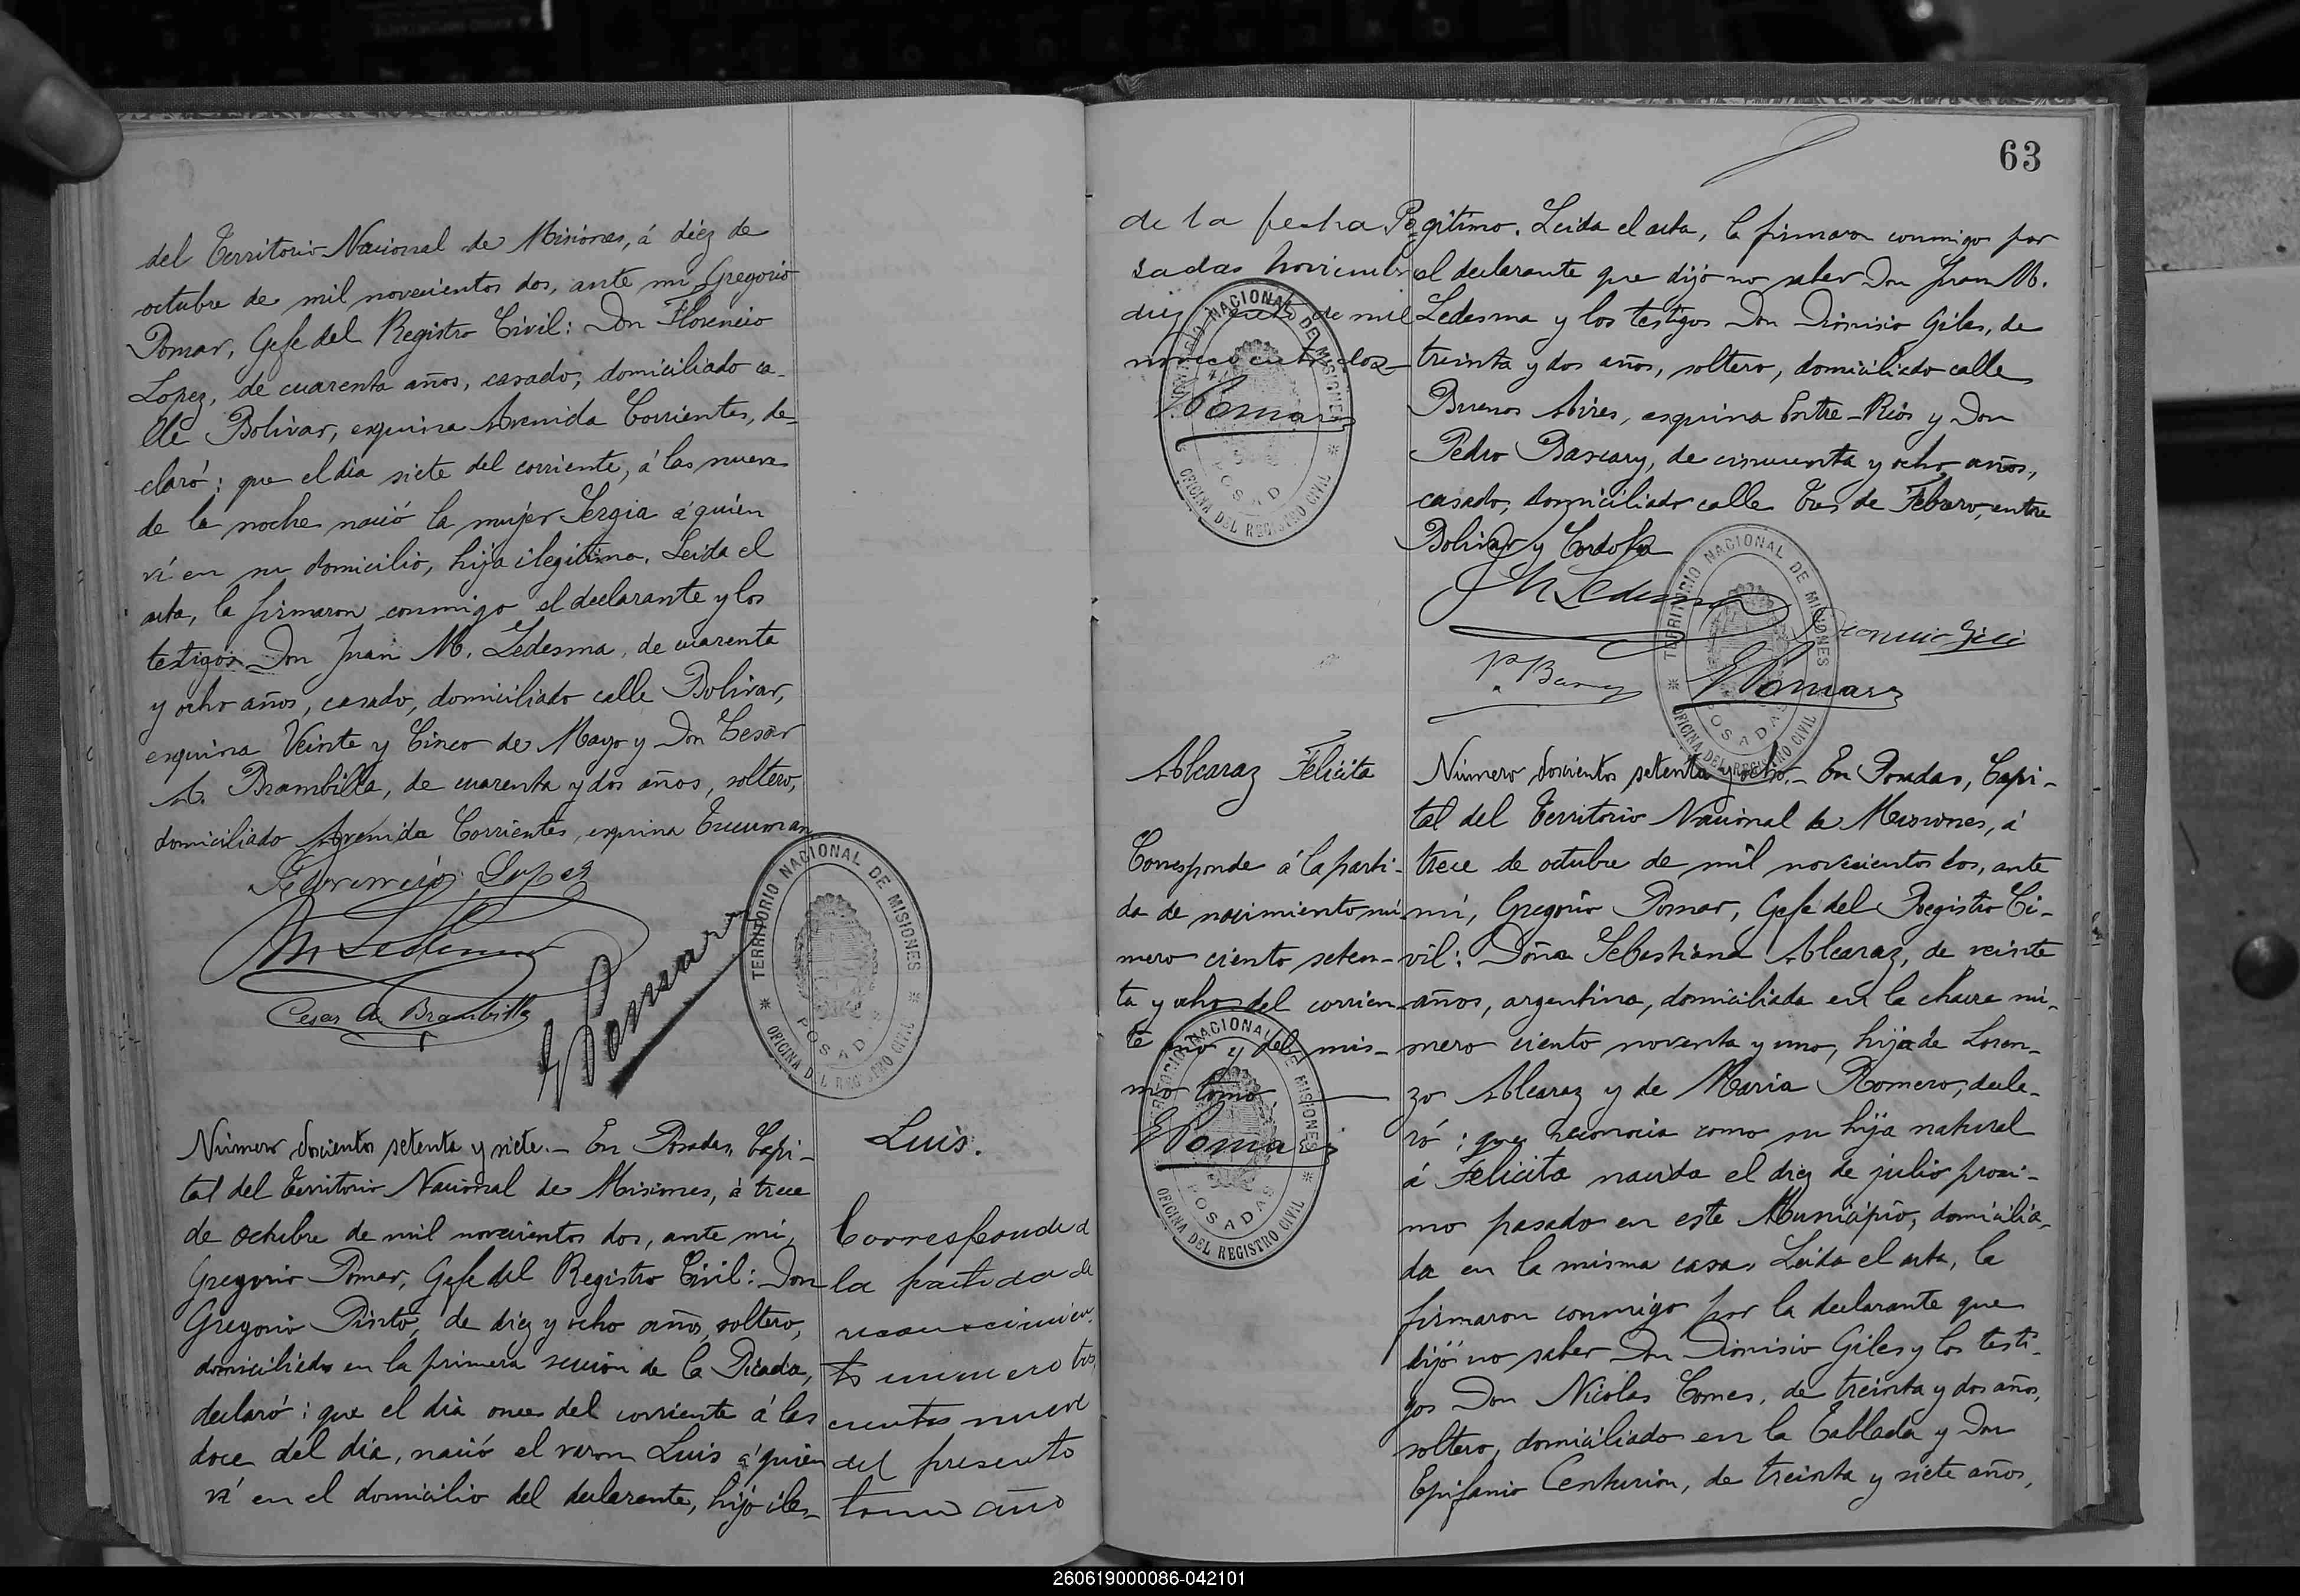 del Territorio Nacional de Misiones, á diez de
octubre de mil novecientos dos, ante mi Gregorio
Pomar, Gefe del Registro Civil: Don Florencio
Lopez, de cuarenta años, casado, domiciliado ca-
lle Bolivar, esquina Avenida Corrientes, de-
claró: que el dia siete del corriente, á las nueve
de la noche nació la mujer Sergia á quien
ví en su domicilio, hija ilegitima. Leida el
acta, la firmaron conmigo el declarante y los
testigos Don Juan M. Ledesma, de cuarenta
y ocho años, casado, domiciliado calle Bolivar,
esquina Veinte y Cinco de Mayo y Don Cesar
A. Brambilla, de cuarenta y dos años, soltero,
domiciliado Avenida Corrientes, esquina Tucuman
Florencio Lopez
JM Ledesma
Cesar A. Brambilla
GPomar
TERRITORIO NACIONAL DE MISIONES
POSADAS
OFICINA DEL REGISTRO CIVIL
Luis.
Corresponde á
la partida de
reconocimien-
to numero tres
cientos nueve
del presente
tomo año
Número doscientos setenta y siete.- En Posadas, Capi-
tal del Territorio Nacional de Misiones, á trece
de octubre de mil novecientos dos, ante mi,
Gregorio Pomar, Gefe del Registro Civil: Don
Gregorio Pinto, de diez y ocho años, soltero,
domiciliado en la primera sección de la Picada,
declaró: que el dia once del corriente á las
doce del dia, nació el varon Luis á quien
ví en el domicilio del declarante, hijo ile-
63
de la fecha Po
sadas noviembre
diez de mil
novecientos dos
Pomar
TERRITORIO NACIONAL DE MISIONES
POSADAS
OFICINA DEL REGISTRO CIVIL
gítimo. Leida el acta, la firmaron conmigo por
el declarante que dijo no saber Don Juan M.
Ledesma y los testigos Don Dionisio Giles, de
treinta y dos años, soltero, domiciliado calle
Buenos Aires, esquina Entre-Rios y Don
Pedro Bascary, de cincuenta y ocho años,
casado, domiciliado calle Tres de Febrero, entre
Bolivar y Cordoba
JM Ledesma
Dionisio Giles
P. Bascary
GPomar
TERRITORIO NACIONAL DE MISIONES
POSADAS
OFICINA DEL REGISTRO CIVIL
Alcaraz Felicita
Corresponde á la parti-
da de nacimiento nú-
mero ciento seten-
ta y ocho del corrien-
te año y del mis-
mo tomo.
GPomar
TERRITORIO NACIONAL DE MISIONES
POSADAS
OFICINA DEL REGISTRO CIVIL
Número doscientos setenta y ocho.- En Posadas, Capi-
tal del Territorio Nacional de Misiones, á
trece de octubre de mil novecientos dos, ante
mí, Gregorio Pomar, Gefe del Registro Ci-
vil: Doña Sebastiana Alcaraz, de veinte
años, argentina, domiciliada en la chacra nú-
mero ciento noventa y uno, hija de Loren-
zo Alcaraz y de Maria Romero, decla-
ró: que reconocia como su hija natural
á Felicita nacida el diez de julio proxi-
mo pasado en este Municipio, domicilia-
da en la misma casa. Leida el acta, la
firmaron conmigo por la declarante que
dijo no saber Don Dionisio Giles y los testi-
gos Don Nicolas Comes, de treinta y dos años,
soltero, domiciliado en la Tablada y Don
Epifanio Centurión, de treinta y siete años,
260619000086-042101